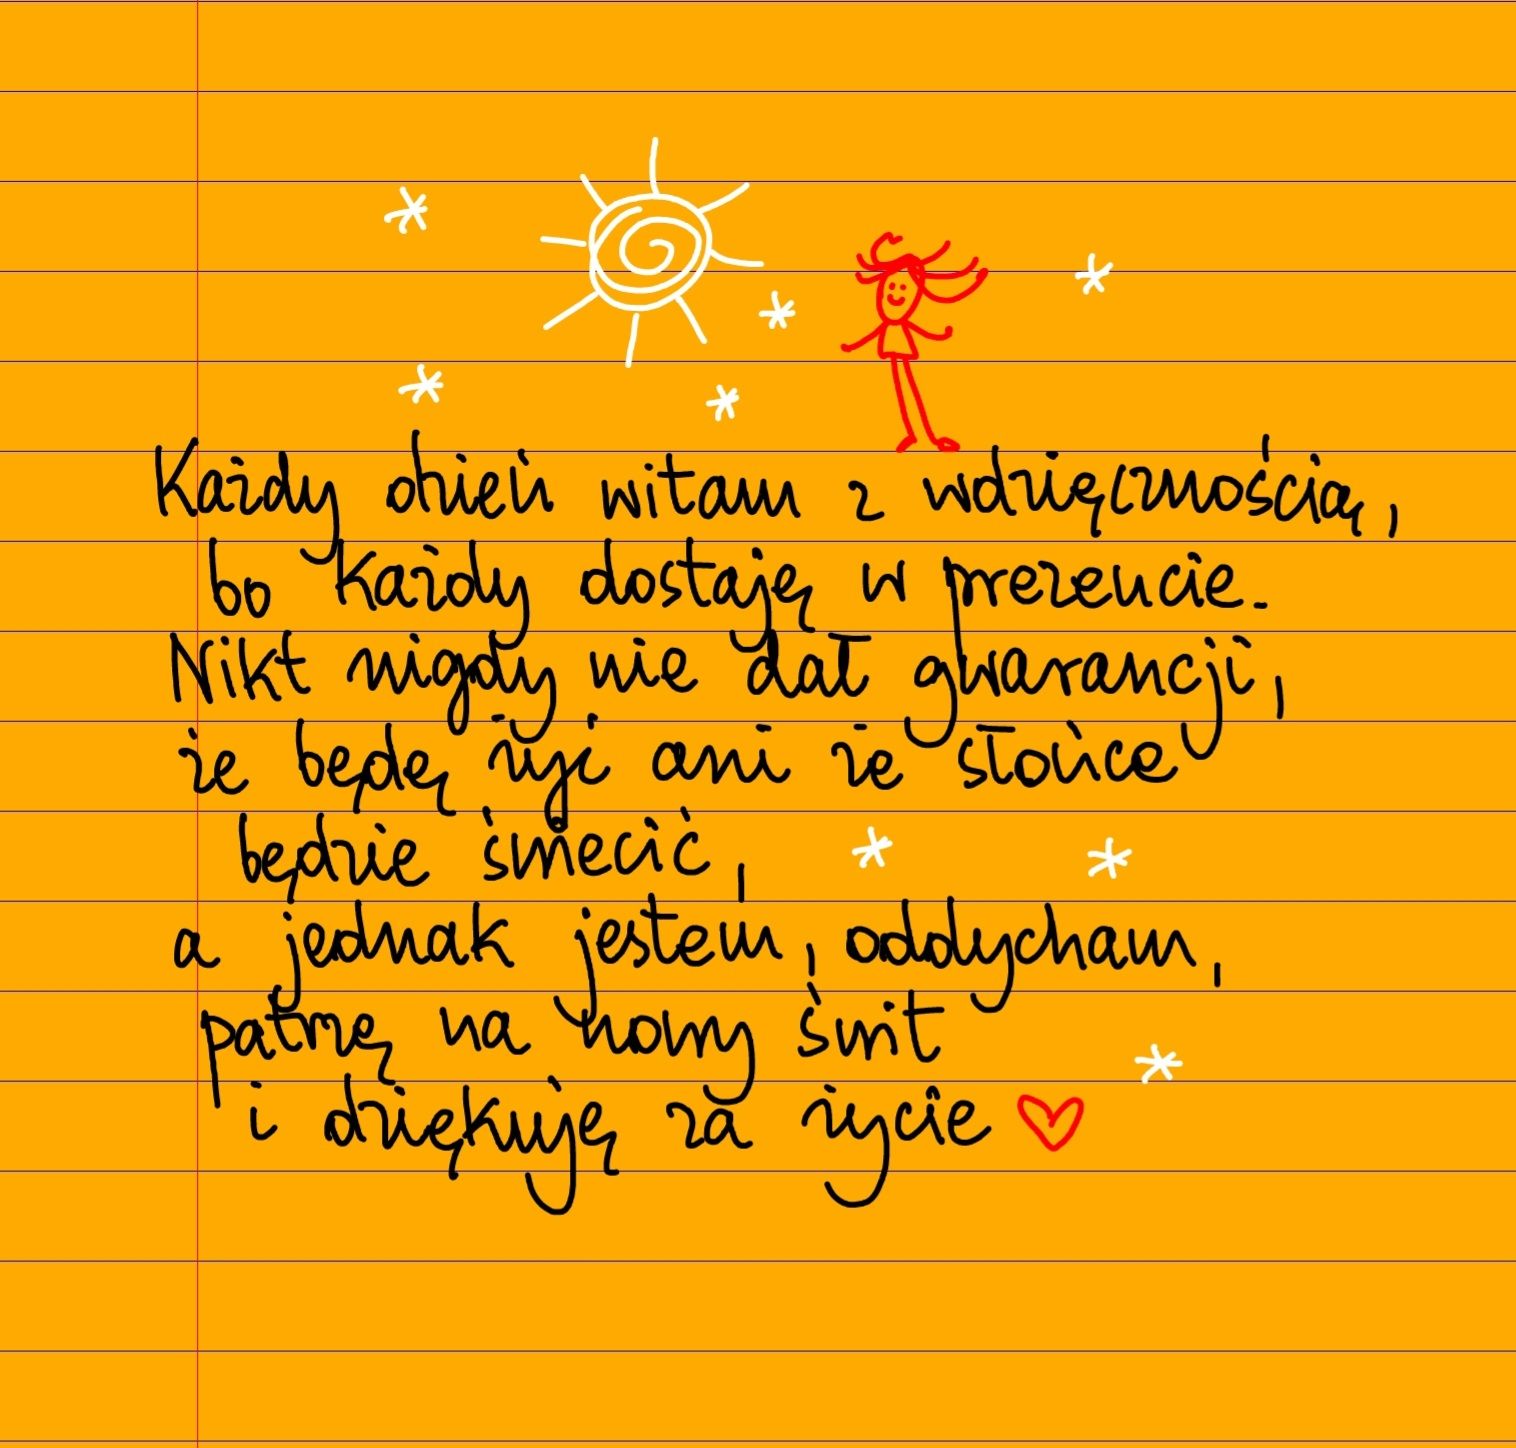 Każdy dzień witam z wdzięcznością,
bo każdy dostaję w prezencie.
Nikt nigdy nie dał gwarancji,
że będę żyć ani że słońce
będzie świecić,
a jednak jestem, oddycham,
patrzę na nowy świt
i dziękuję za życie